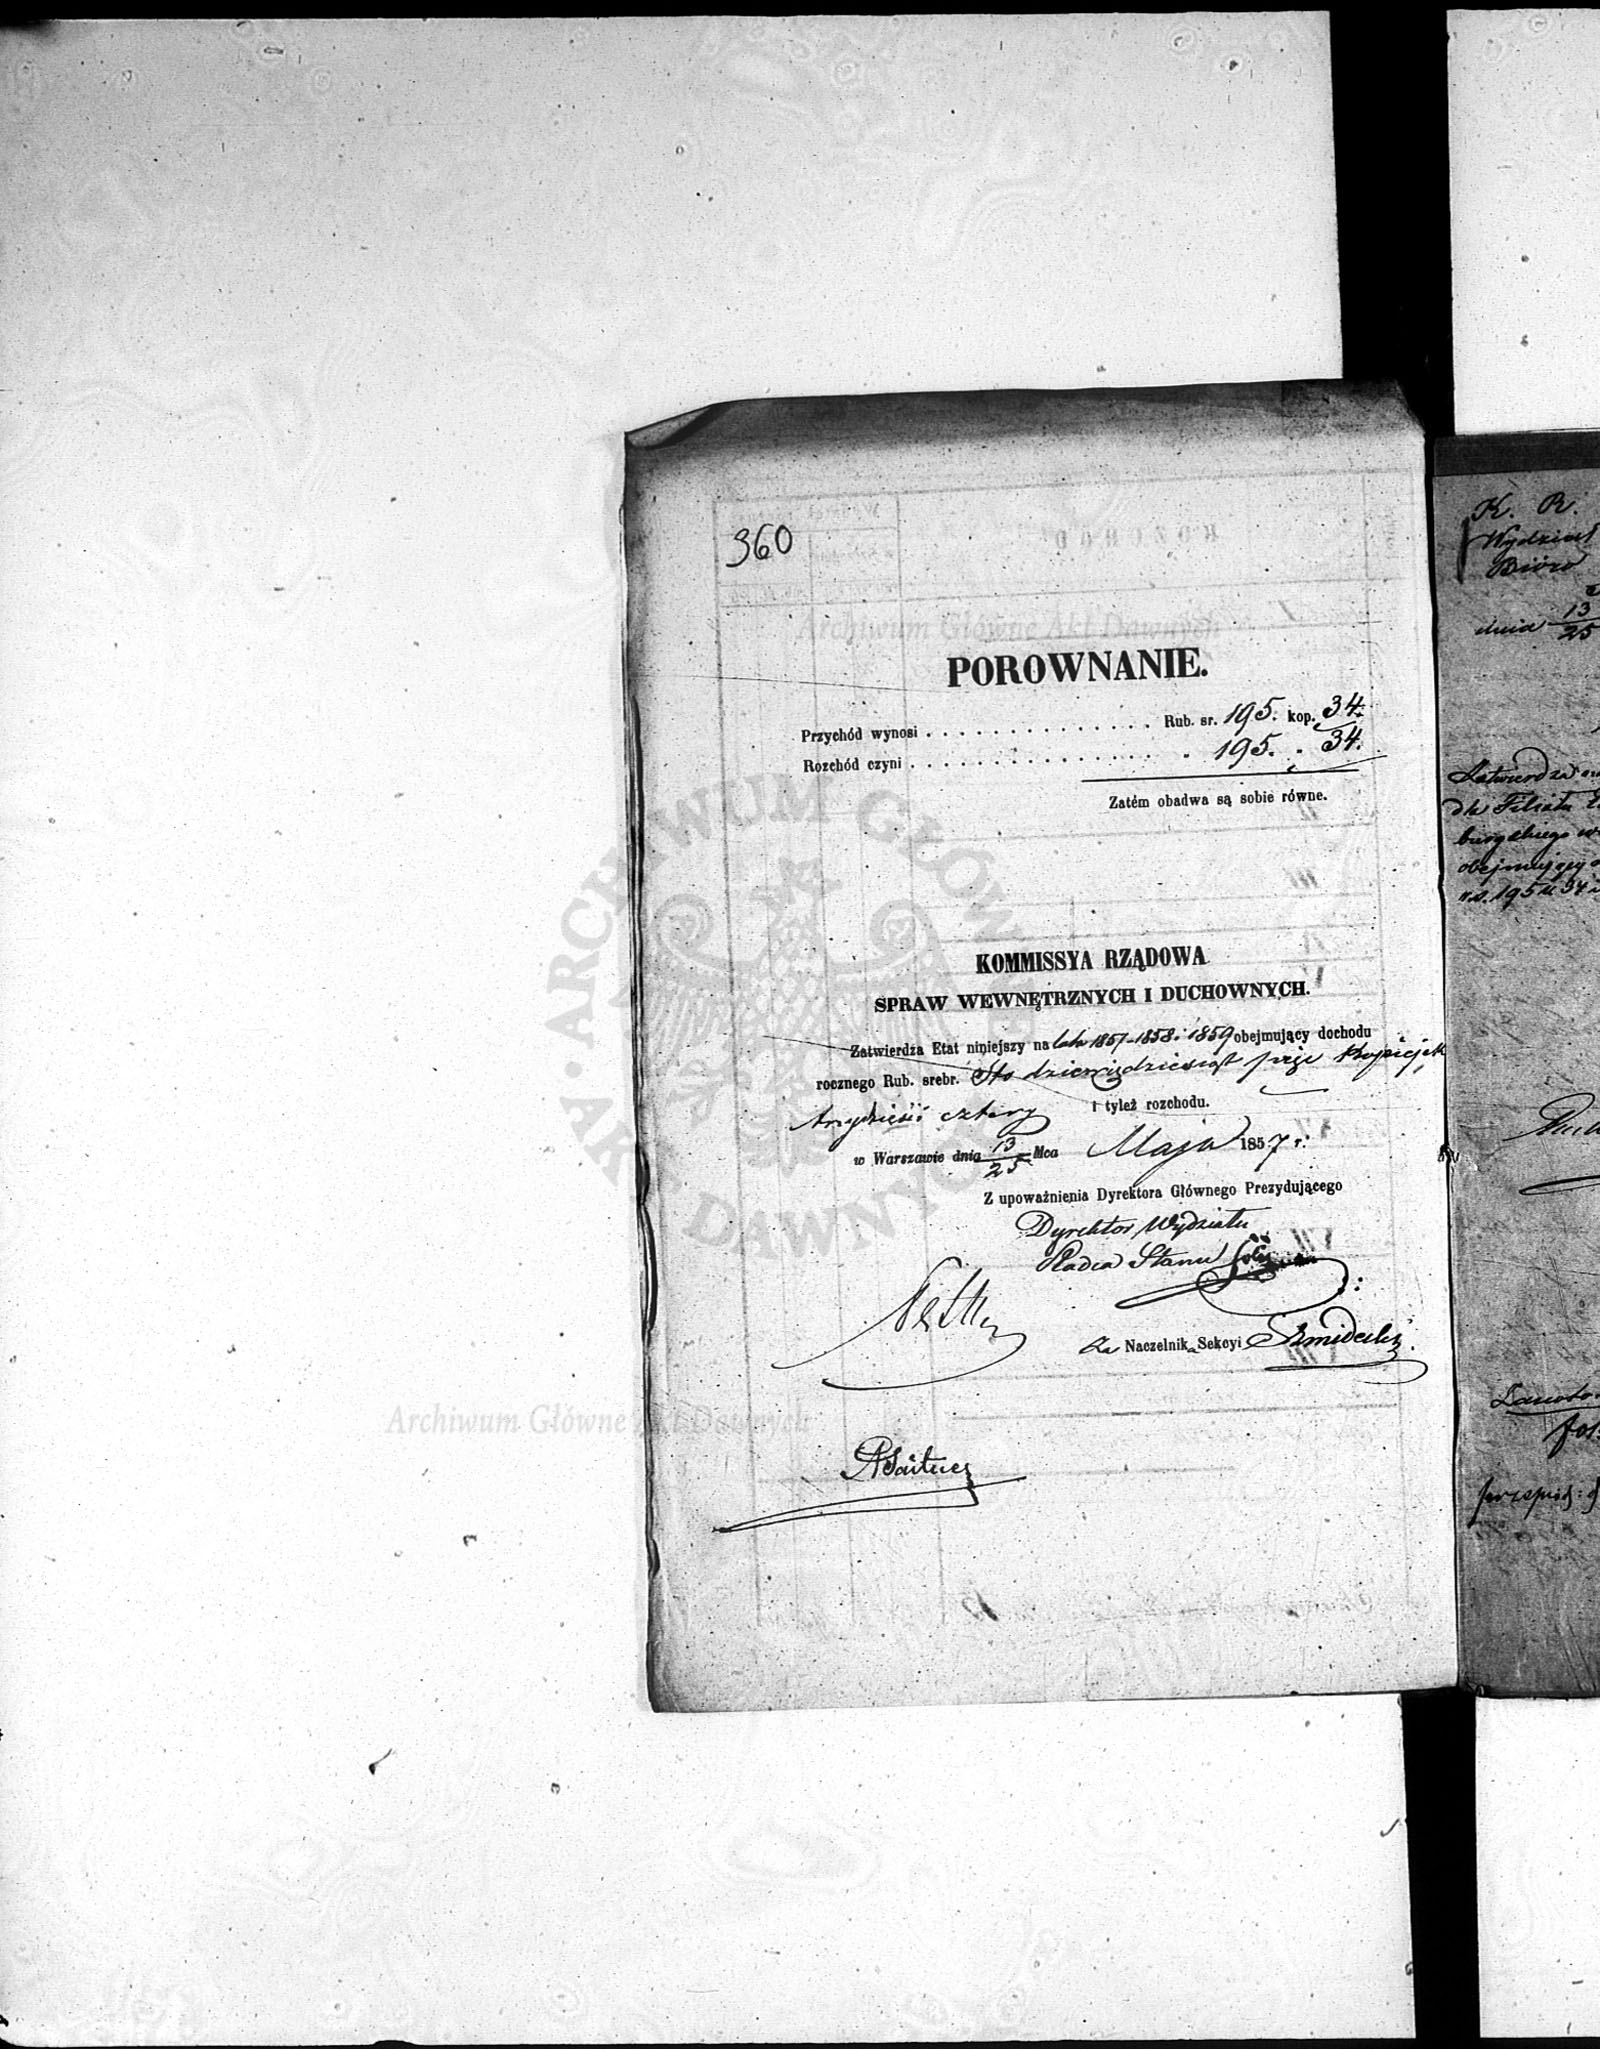 360
POROWNANIE.
Przychód wynosi . . . . . . . . . . . . . . . Rub. sr. 195. kop. 34.
Rozchód czyni . . . . . . . . . . . . . . . . . „ 195. „ 34.
Zatém obadwa są sobie równe.
KOMMISSYA RZĄDOWA
SPRAW WEWNĘTRZNYCH I DUCHOWNYCH.
Zatwierdza Etat niniejszy na lata 1857-1858 i 1859 obejmujący dochodu
rocznego Rub. srebr. Sto dziewięćdziesiąt pięć Kopiejek
trzydzieści cztery i tyleż rozchodu.
w Warszawie dnia 13/25 Mca Maja 1857 r.
Z upoważnienia Dyrektora Głównego Prezydującego
Dyrektor Wydziału
Radca Stanu
za Naczelnika Sekcyi
K. R.
Wydział
Bióro
dnia 13/25
Zatwierdza
dla Filiału
burgskiego
obejmujący
rs. 195 k 34
Archiwum Główne Akt Dawnych
Archiwum Główne Akt Dawnych
ARCHIWUM GŁÓWNE AKT DAWNYCH